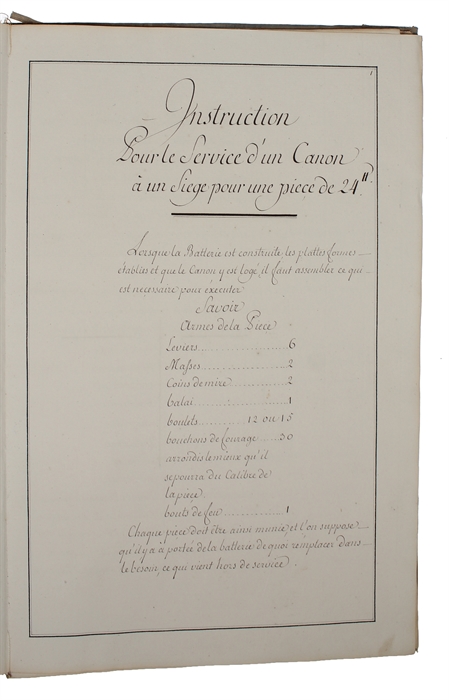 1
Instruction
Pour le Service d'un Canon
à un Siege pour une piece de 24 ″
Lorsque la Batterie est construite, les plattes formes
établies et que le Canon y est logé, il faut assembler ce qui
est necessaire pour executer
Savoir
Armes de la Piece
Leviers 6
Masses 2
Coins de mire 2
balai 1
boulets 12 ou 15
bouchons de fourage 30
arrondis le mieux qu'il
se pourra du Calibre de
la piece
bouts de feu 1
Chaque piece doit être ainsi munie, et l'on suppose
qu'il y a à portée de la batterie de quoi remplacer dans
le besoin, ce qui vient hors de service